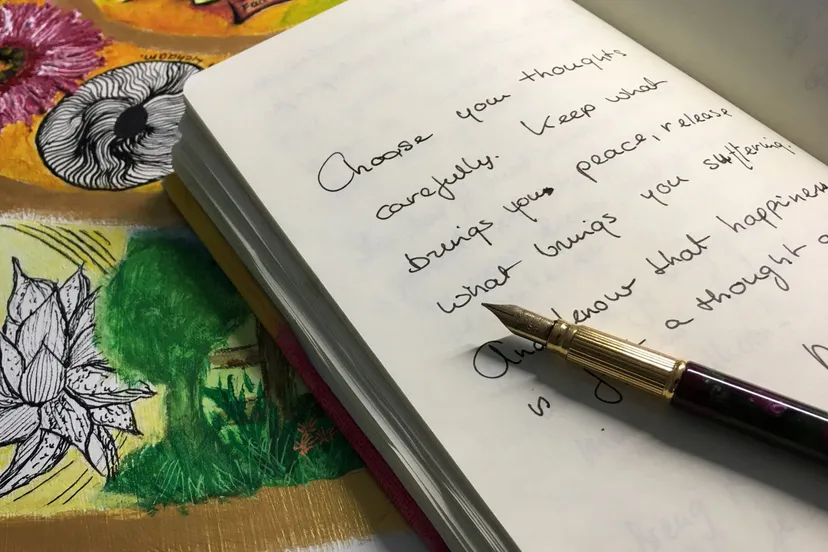 Choose your thoughts
carefully. Keep what
brings you peace, release
what brings you suffering.
And know that happiness
is a thought